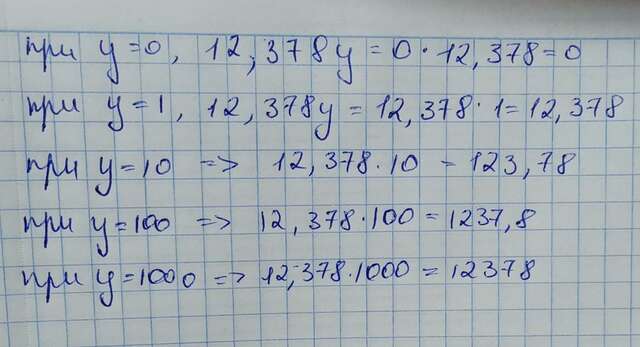 при y=0, 12,378y = 0·12,378=0
при y=1, 12,378y = 12,378·1=12,378
при y=10 => 12,378·10 = 123,78
при y=100 => 12,378·100=1237,8
при y=1000 => 12,378·1000 = 12378